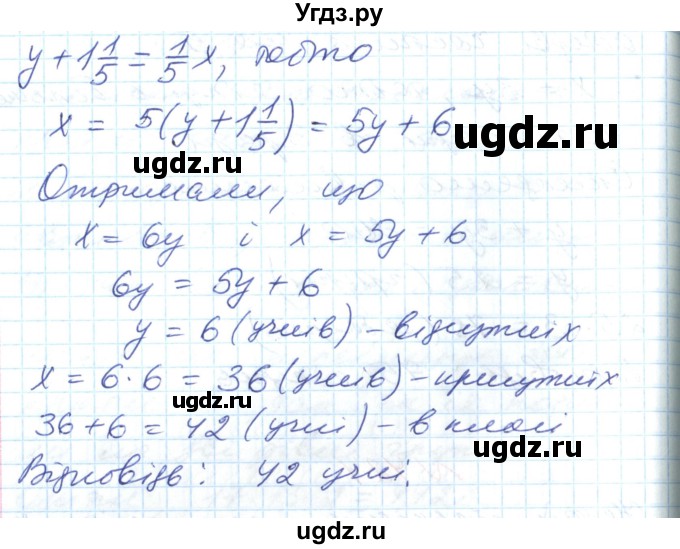 Угдз.ру
y + 1 1/5 = 1/5 x, тобто
x = 5(y + 1 1/5) = 5y + 6
ugdz.ru
Отримали, що
x = 6y і x = 5y + 6
6y = 5y + 6
y = 6 (учнів) – відсутніх
x = 6 · 6 = 36 (учнів) – присутніх
ugdz.ru
36 + 6 = 42 (учні) – в класі
ugdz.ru
Відповідь: 42 учні.
ugdz.ru